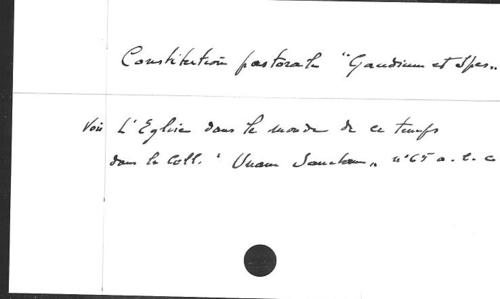 Constitution pastorale "Gaudium et Spes"
Voir L'Eglise dans le monde de ce temps
dans la Coll. "Unam Sanctam" n°65 a. b. c